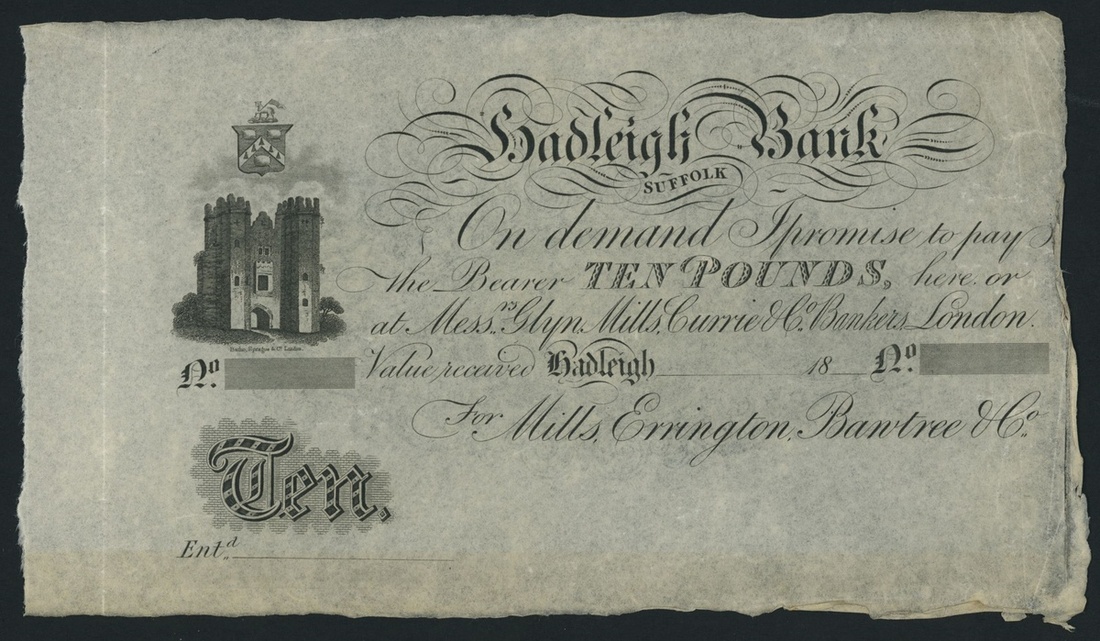 Hadleigh Bank
SUFFOLK
On demand I promise to pay
the Bearer TEN POUNDS, here or
at Mess.rs Glyn Mills, Currie & Co. Bankers London.
No. Value received Hadleigh 18 No.
For Mills, Errington, Bawtree & Co.
Ten,
Ent.d